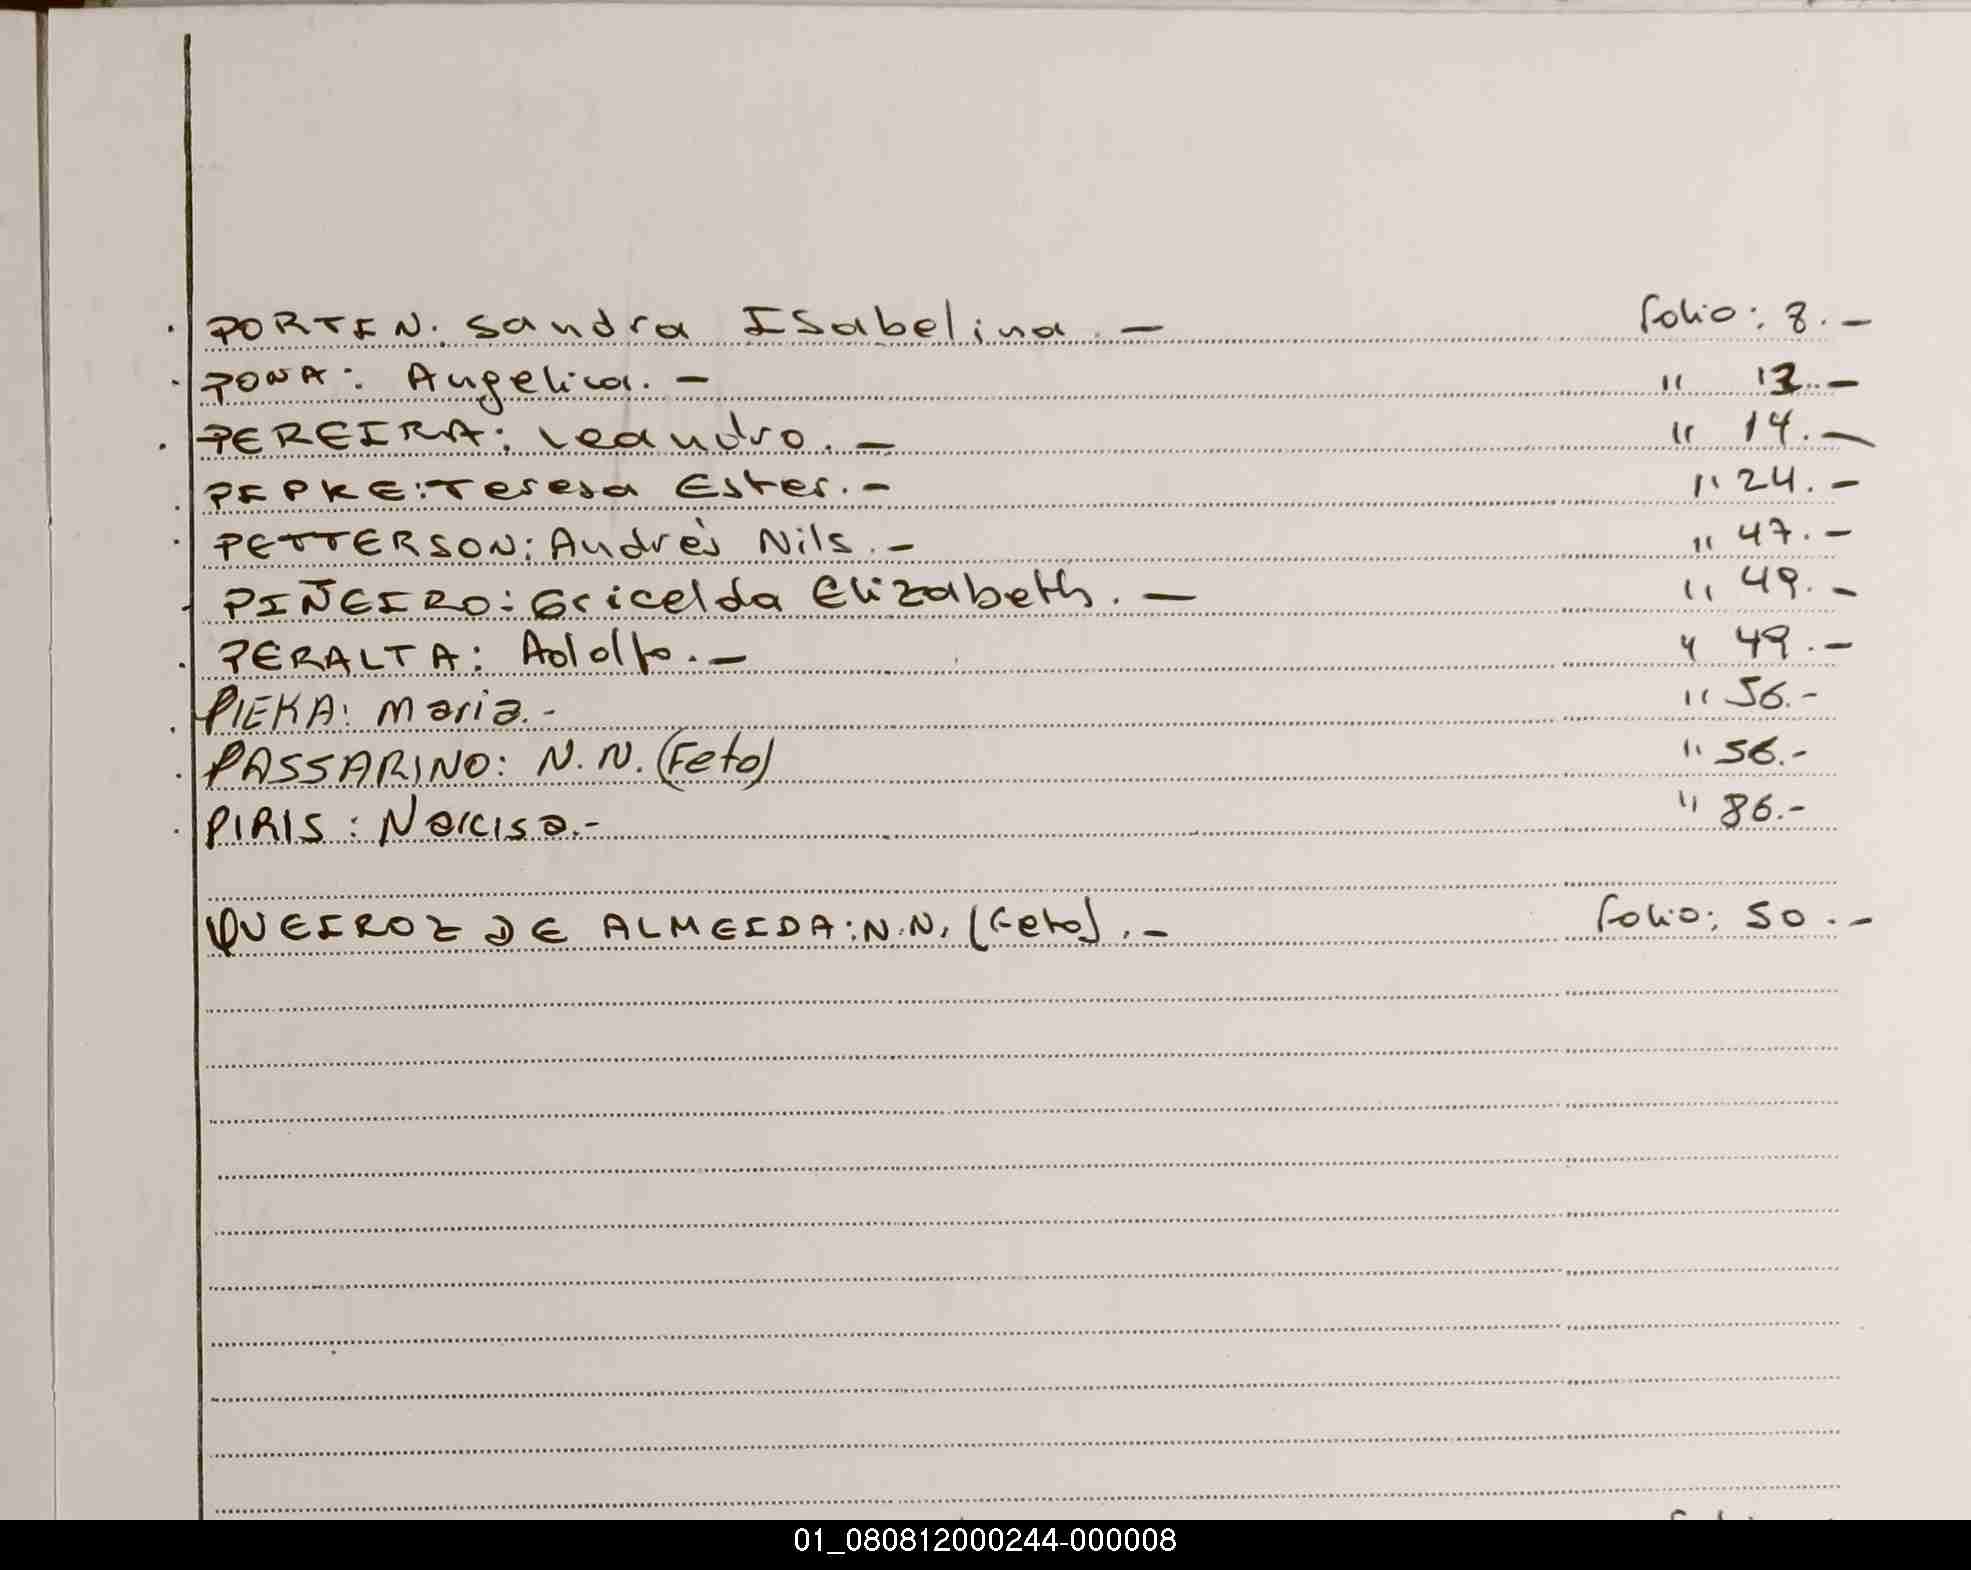 PORTEN. Sandra Isabelina. — folio: 8. —
PONA: Angelica. — " 12. —
PEREIRA: Leandro. — " 14. —
PEPKE: Teresa Ester. — " 24. —
PETTERSON: Andrès Nils. — " 47. —
PIÑEIRO: Gricelda Elizabeth. — " 49. —
PERALTA: Adolfo. — " 49. —
PIEKA: Maria. - " 56. -
PASSARINO: N.N. (Feto) " 56. -
PIRIS: Narcisa. - " 86. -
QUEIROZ DE ALMEIDA: N.N. (Feto). — folio: 50. —
01_080812000244-000008